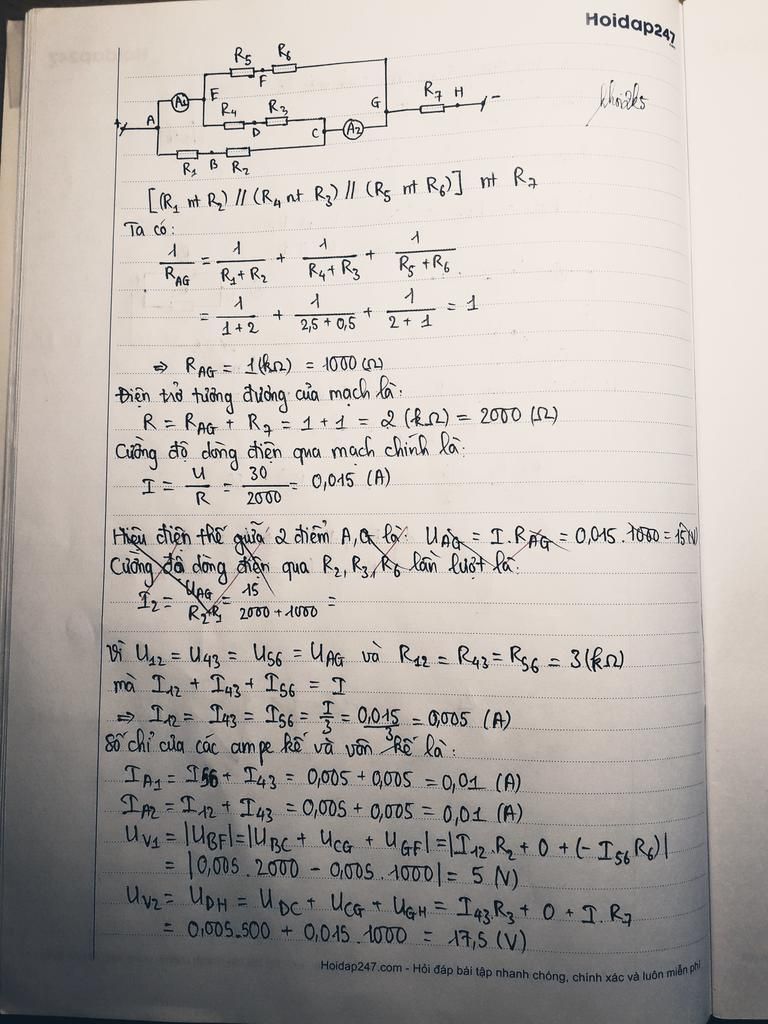 Hoidap247
R5 R6
F
A1 E
R4 R3
D
A C A2 G
R7 H
+ -
R1 B R2
[(R1 nt R2) // (R4 nt R3) // (R5 nt R6)] nt R7
Ta có:
1/RAG = 1/(R1+R2) + 1/(R4+R3) + 1/(R5+R6)
= 1/(1+2) + 1/(2,5+0,5) + 1/(2+1) = 1
⇒ RAG = 1(kΩ) = 1000(Ω)
Điện trở tương đương của mạch là:
R = RAG + R7 = 1 + 1 = 2 (kΩ) = 2000 (Ω)
Cường độ dòng điện qua mạch chính là:
I = U/R = 30/2000 = 0,015 (A)
Hiệu điện thế giữa 2 điểm A,G là: UAG = I.RAG = 0,015.1000 = 15(V)
Cường độ dòng điện qua R2, R3, R6 lần lượt là:
I2 = UAG/(R2+R1) = 15/(2000+1000) =
Vì U12 = U43 = U56 = UAG và R12 = R43 = R56 = 3(kΩ)
mà I12 + I43 + I56 = I
⇒ I12 = I43 = I56 = I/3 = 0,015/3 = 0,005 (A)
Số chỉ của các ampe kế và vôn kế là:
IA1 = I56 + I43 = 0,005 + 0,005 = 0,01 (A)
IA2 = I12 + I43 = 0,005 + 0,005 = 0,01 (A)
UV1 = |UBF| = |UBC + UCG + UGF| = |I12.R2 + 0 + (-I56R6)|
= |0,005.2000 - 0,005.1000| = 5 (V)
UV2 = UDH = UDC + UCG + UGH = I43.R3 + 0 + I.R7
= 0,005.500 + 0,015.1000 = 17,5 (V)
Hoidap247.com - Hỏi đáp bài tập nhanh chóng, chính xác và luôn miễn phí